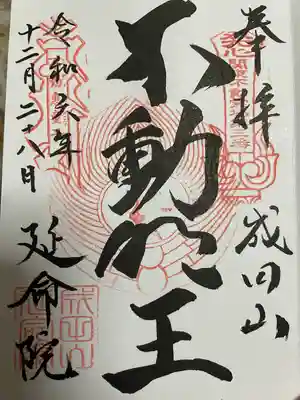 奉拝
成田山
不動明王
令和六年
十二月二十八日
延命院